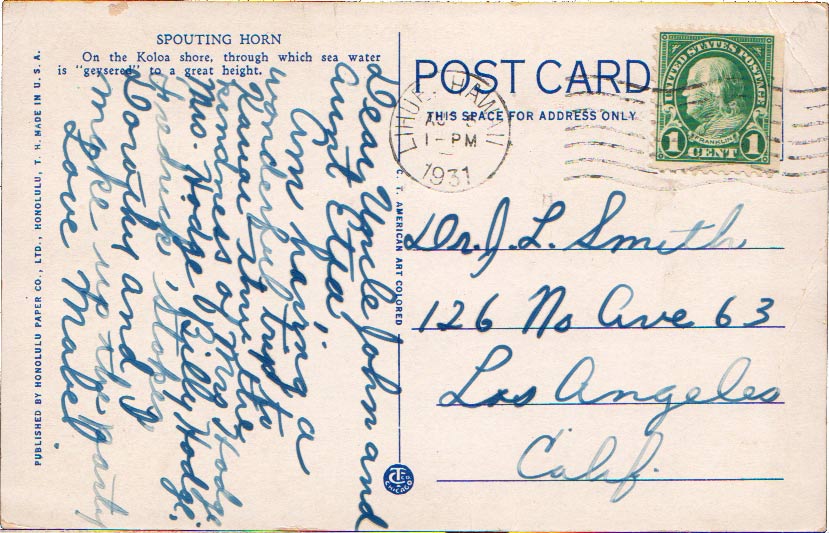 SPOUTING HORN
On the Koloa shore, through which sea water
is "geysered" to a great height.
PUBLISHED BY HONOLULU PAPER CO., LTD., HONOLULU, T. H. MADE IN U. S. A.
Dear Uncle John and
Aunt Etta
Am having a
wonderful trip to
Kauai thru the
kindness of Mr Hodge
Mrs. Hodge, Billy Hodge,
Stokes
Dorothy and I
make up the party
Love Mabel
C. T. AMERICAN ART COLORED
POST CARD
THIS SPACE FOR ADDRESS ONLY
LIHUE, HAWAII
1-PM
1931
UNITED STATES POSTAGE
FRANKLIN
1 CENT 1
Dr. J. L. Smith
126 No Ave 63
Los Angeles
Calif.
CHICAGO